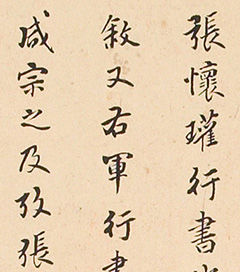 張懷瓘行書
敘又右軍行書
咸宗之及攷張